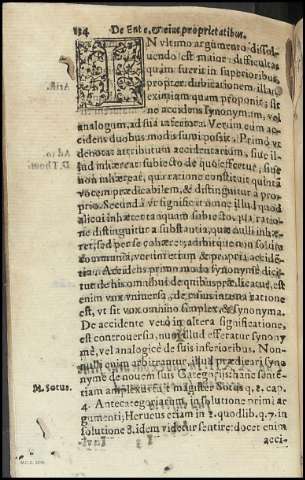 134 De Ente, & eius proprietatibus.
IN vltimo argumento dissol-
uendo est maior difficultas
quàm fuerit in superioribus,
propter dubitationem illam
eximiam quam proponit; sit
Arist.
ne accidens synonymum, vel
analogum, ad sua inferiora. Verùm cùm ac-
cidens duobus modis sumi possit. Primò vt
denotat attributum accidentarium, siue il-
Ad 10.
lud inhæreat subiecto de quo effertur, siue
D. Thom.
non inhæreat, qua ratione constituit quintã
vocem prædicabilem, & distinguitur à pro-
prio. Secundò vt significet nonnisi illud quod
alicui inhæret tanquam subiecto, qua ratio-
ne distinguitur à substantia, quæ nulli inhæ-
ret, sed per se cohæret, adhibetque non solùm
communia, verùm etiam & propria acciden-
tia. Accidens primo modo synonymè dici-
tur de his omnibus de quibus prædicatur, est
enim vox vniuersa, & eius vna ratione
est, vt sit vox omnino simplex, & synonyma.
De accidente verò in altera significatione,
est controuersia, num illud efferatur synony-
mè, vel analogicè de suis inferioribus. Non-
nulli enim arbitrantur, illud prædicari syno-
nymè de nouem suis Categoriis: hanc sen-
M. Sotus.
tentiam amplexus est magister Sotus q. 2. cap.
4. Antecategoriarum, in solutione primi ar-
gumenti; Herueus etiam in 2. quodlib. q. 7. in
solutione 8. idem videtur sentire: docet enim
acci-